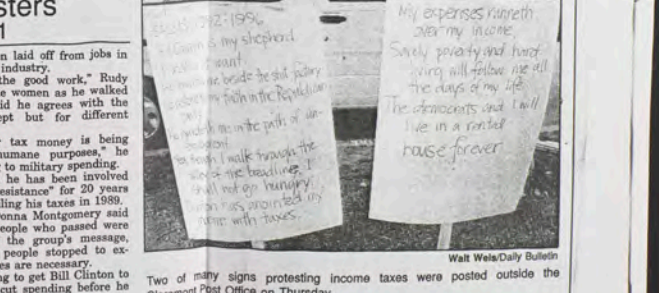 sters
1
n laid off from jobs in
industry.
the good work," Rudy
e women as he walked
id he agrees with the
ept but for different
tax money is being
umane purposes," he
g to military spending.
he has been involved
esistance" for 20 years
ling his taxes in 1989.
onna Montgomery said
eople who passed were
the group's message,
people stopped to ex-
es are necessary.
ng to get Bill Clinton to
cut spending before he
1992-1996
is my shepherd
I want
me beside the still factory
my faith in the Republican
party
me in the path of un-
I walk through the
of the breadline, I
shall not go hungry
has anointed my
with taxes.
My expenses runneth
over my income,
Surely poverty and hard
living will follow me all
the days of my life
The democrats and I will
live in a rented
house forever
Walt Weis/Daily Bulletin
Two of many signs protesting income taxes were posted outside the
Post Office on Thursday